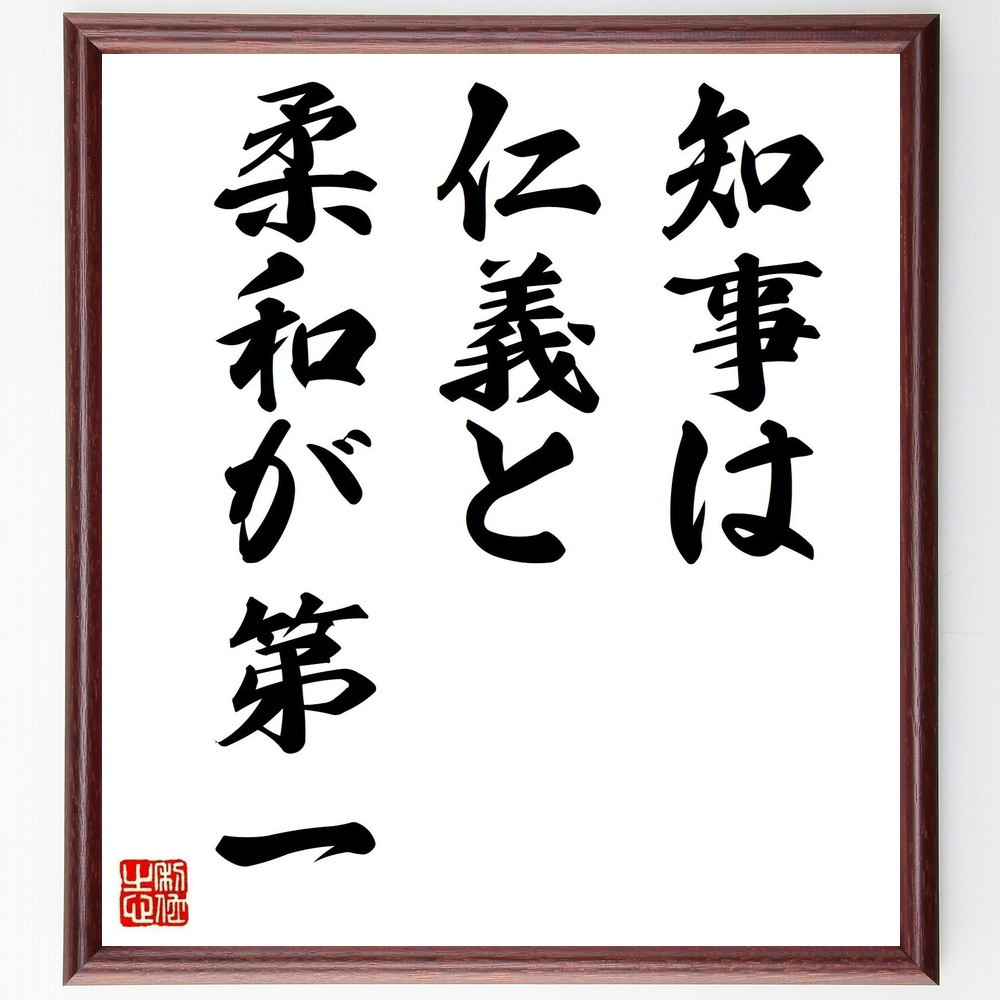 知事は
仁義と
柔和が第一